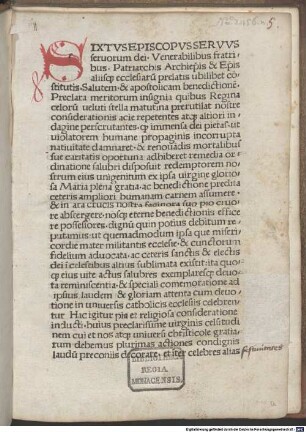 SIXTVS EPISCOPVS SERVVS
seruorum dei. Venerabilibus fratri
bus. Patriarchis Archiepis & Epis
aliisq; ecclesiarū prelatis ubilibet co
stitutis. Salutem. & apostolicam benedictionē.
Preclara meritorum insignia quibus Regina
celorū uelut stella matutina prerutilat nostre
considerationis acie repetentes atq; altiori in
dagine perscrutantes. q immensa dei pietas. ut
uiolatorem humane propaginis incorrupta
natiuitate damnaret. & renouādis mortalibus
sue caritatis oportuna adhiberet remedia or
dinatione salubri disposuit redemptorem no
strum eius unigenitum ex ipsa uirgine glorio
sa Maria plena gratia. ac benedictione predita
ceteris ampliori humanam carnem assumere.
& in ara crucis nostra facinora suo pio cruo
re abstergere. nosq; eterne benedictionis effice
re possessores. dignū quin potius debitum re
putamus. ut quemadmodum ipsa que miseri
cordie mater militantis ecclesie. & cunctorum
fidelium aduocata. ac ceteris sanctis & electis
dei ī celestibus altius sublimata existit. ita quo
q; eius uite actus salubres exemplaresq; deuo
ta reminiscentia. & speciali comemoratione ad
ipsius laudem & gloriam attenta cum deuo
tione in uniuersis catholicis ecclesiis celebren
tur. Hac igitur pia et religiosa consideratione
inducti. huius preclarissime uirginis celsitudi
nem cui et nos atq; uniuersi christicole gratia
rum debemus plurimas actiones condignis
laudū preconiis decorare. et iter celebres alias
BIBLIOTHECA
REGIA
MONACENSIS.